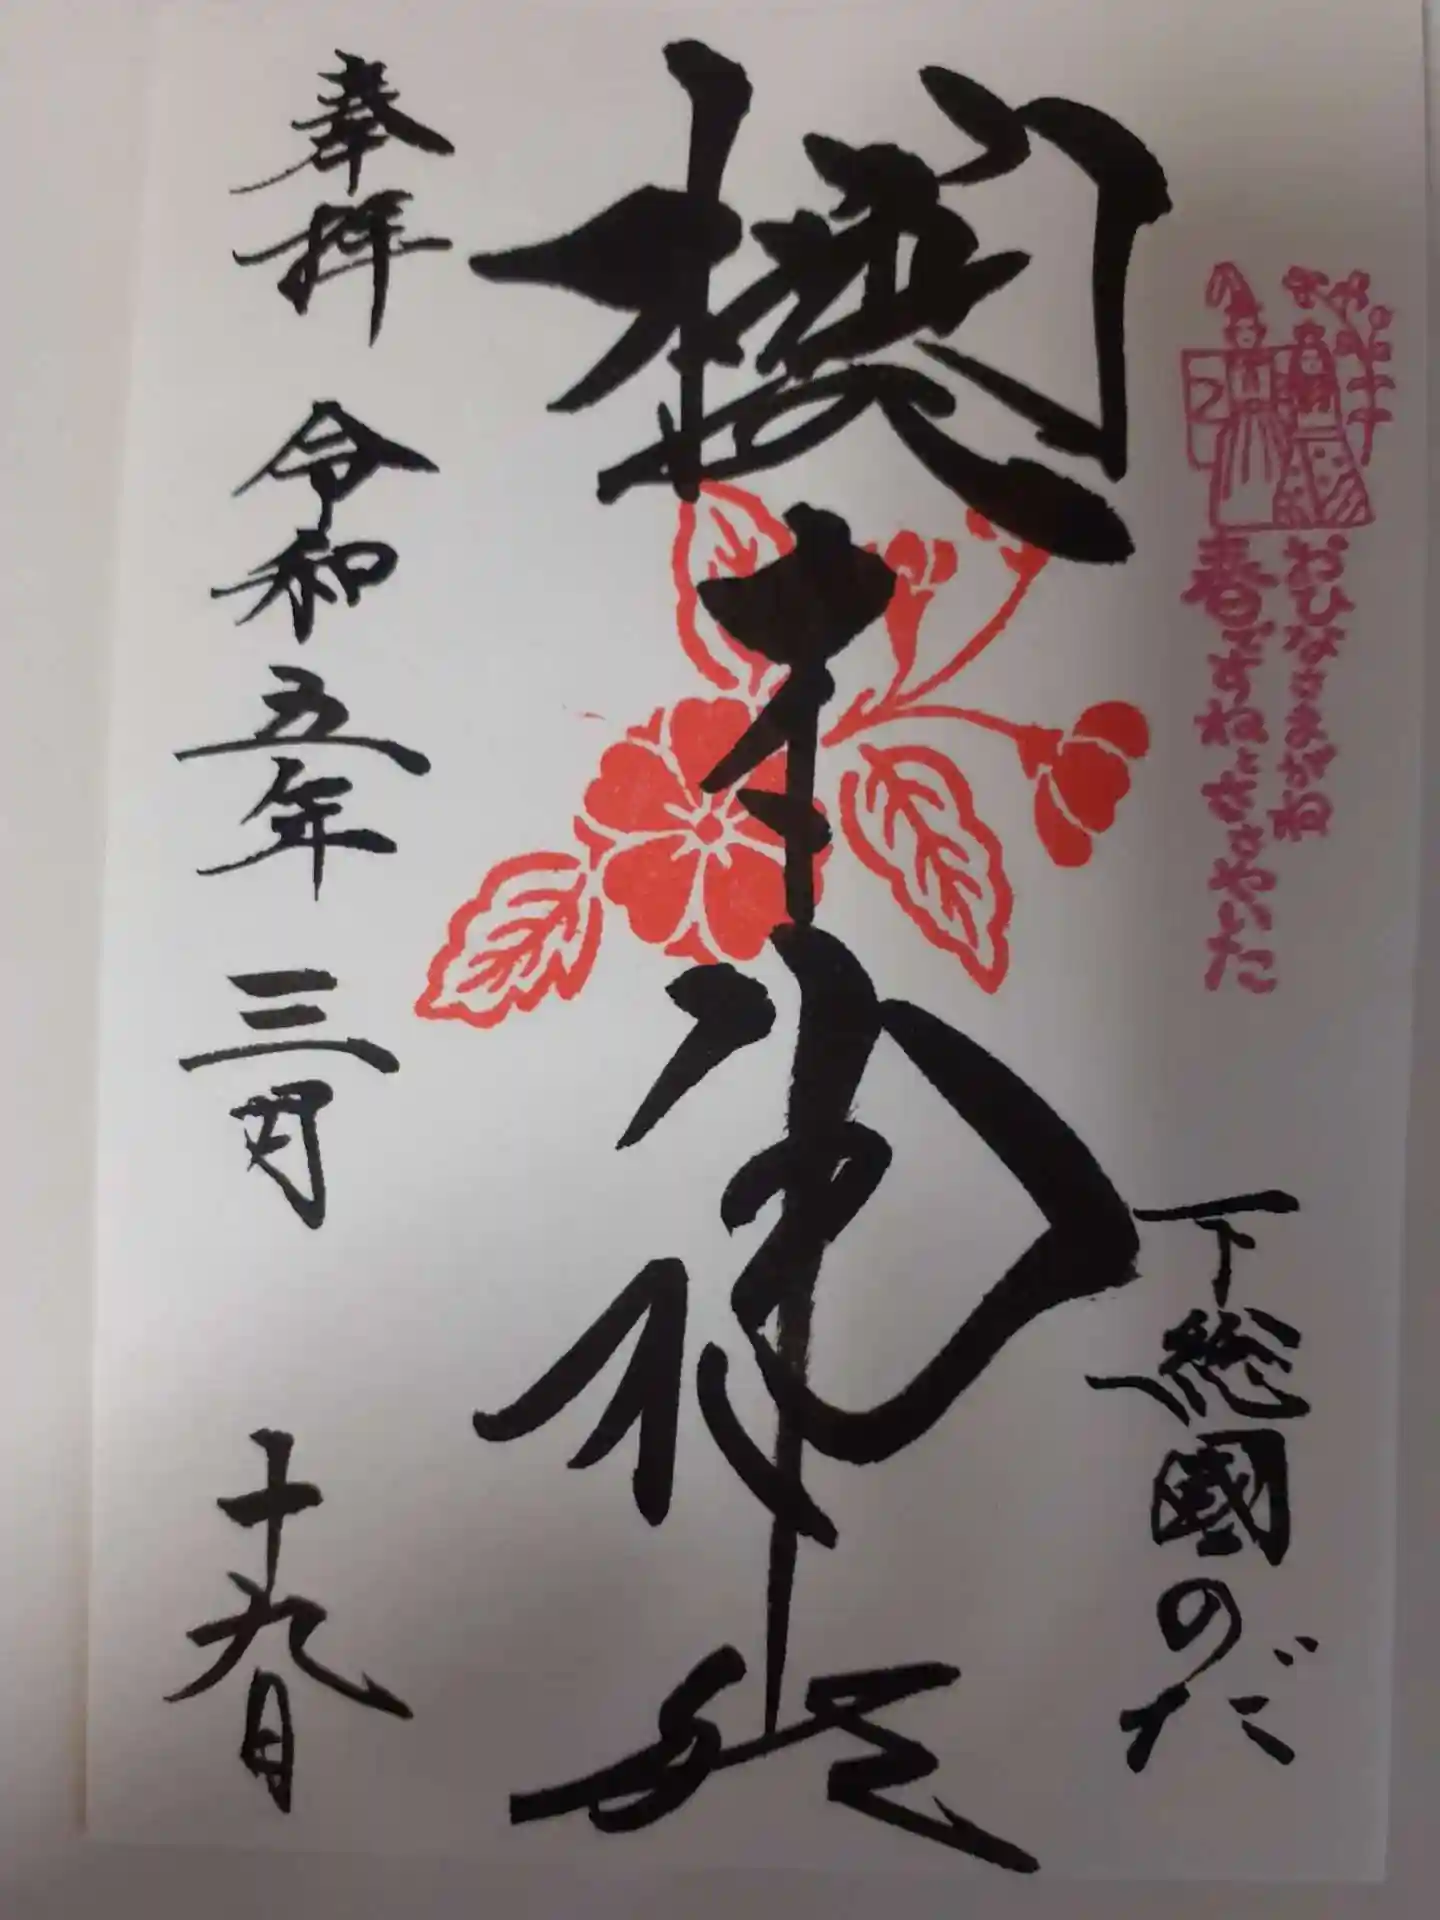 おひなさまがね
春ですねとささやいた
下総國のだ
櫻木神社
奉拝 令和五年 三月 十九日